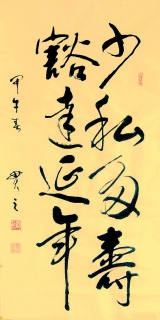 少私多壽
豁達延年
甲午春